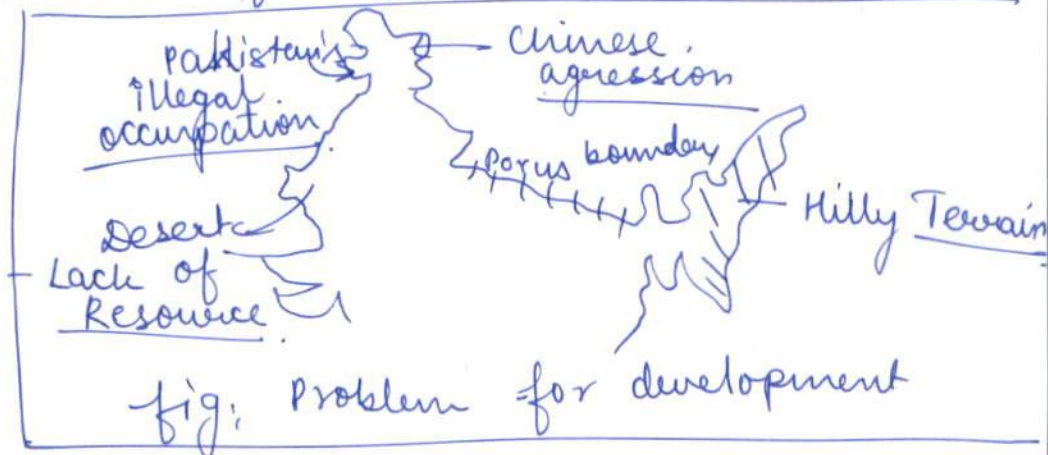 Pakistan's
illegal
occurpation
Chinese.
agression
Porus boundary
Hilly Terrain
Desert
Lack of
Resource
fig: Problem for development